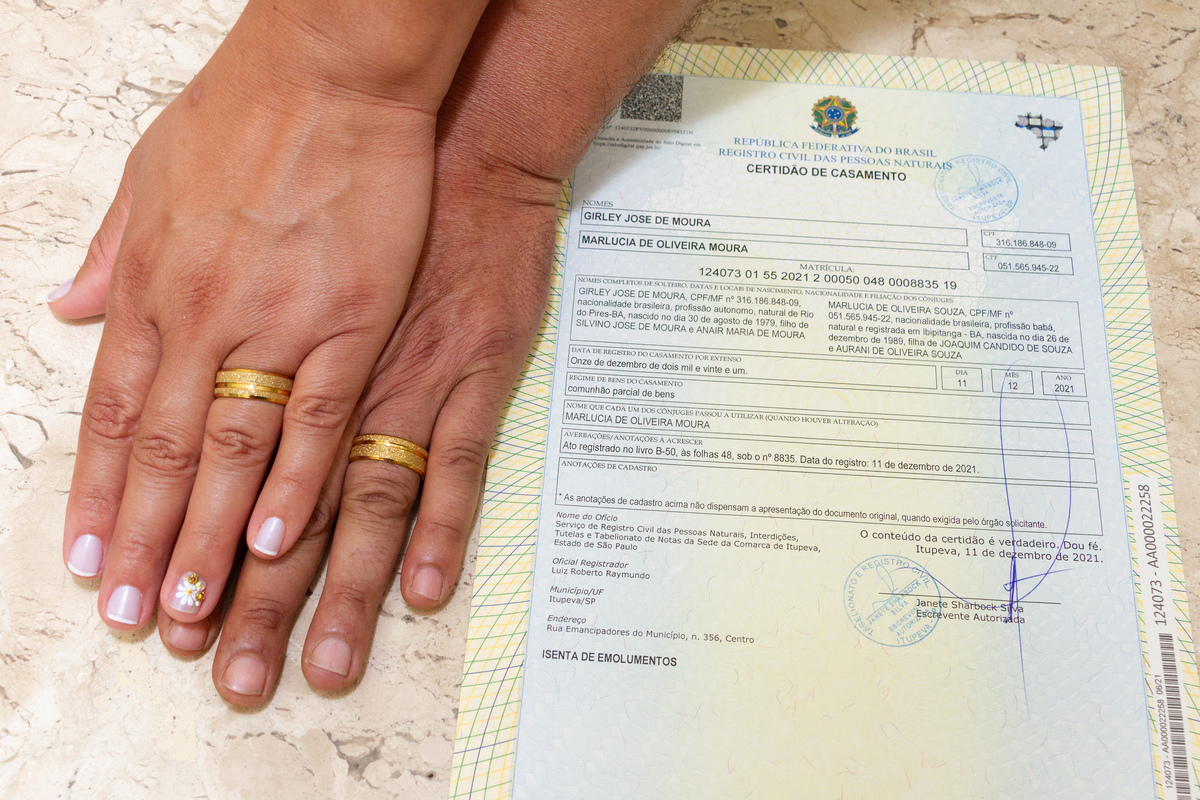 REPÚBLICA FEDERATIVA DO BRASIL
REGISTRO CIVIL DAS PESSOAS NATURAIS
CERTIDÃO DE CASAMENTO
NOMES
GIRLEY JOSE DE MOURA
CPF
316.186.848-09
MARLUCIA DE OLIVEIRA MOURA
CPF
051.565.945-22
MATRÍCULA:
124073 01 55 2021 2 00050 048 0008835 19
NOMES COMPLETOS DE SOLTEIRO, DATAS E LOCAIS DE NASCIMENTO, NACIONALIDADE E FILIAÇÃO DOS CÔNJUGES
GIRLEY JOSE DE MOURA, CPF/MF nº 316.186.848-09,
nacionalidade brasileira, profissão autonomo, natural de Rio
do Pires-BA, nascido no dia 30 de agosto de 1979, filho de
SILVINO JOSE DE MOURA e ANAIR MARIA DE MOURA
MARLUCIA DE OLIVEIRA SOUZA, CPF/MF nº
051.565.945-22, nacionalidade brasileira, profissão babá,
natural e registrada em Ibipitanga - BA, nascida no dia 26 de
dezembro de 1989, filha de JOAQUIM CANDIDO DE SOUZA
e AURANI DE OLIVEIRA SOUZA
DATA DE REGISTRO DO CASAMENTO POR EXTENSO
Onze de dezembro de dois mil e vinte e um.
DIA
11
MÊS
12
ANO
2021
REGIME DE BENS DO CASAMENTO
comunhão parcial de bens
NOME QUE CADA UM DOS CÔNJUGES PASSOU A UTILIZAR (QUANDO HOUVER ALTERAÇÃO)
MARLUCIA DE OLIVEIRA MOURA
AVERBAÇÕES/ANOTAÇÕES À ACRESCER
Ato registrado no livro B-50, às folhas 48, sob o nº 8835. Data do registro: 11 de dezembro de 2021.
ANOTAÇÕES DE CADASTRO
* As anotações de cadastro acima não dispensam a apresentação do documento original, quando exigida pelo órgão solicitante.
Nome do Ofício
Serviço de Registro Civil das Pessoas Naturais, Interdições,
Tutelas e Tabelionato de Notas da Sede da Comarca de Itupeva,
Estado de São Paulo
Oficial Registrador
Luiz Roberto Raymundo
Município/UF
Itupeva/SP
Endereço
Rua Emancipadores do Município, n. 356, Centro
ISENTA DE EMOLUMENTOS
O conteúdo da certidão é verdadeiro. Dou fé.
Itupeva, 11 de dezembro de 2021.
Janete Sharbock Silva
Escrevente Autorizada
124073 - AA000022258
124073 - AA000022258 06/21